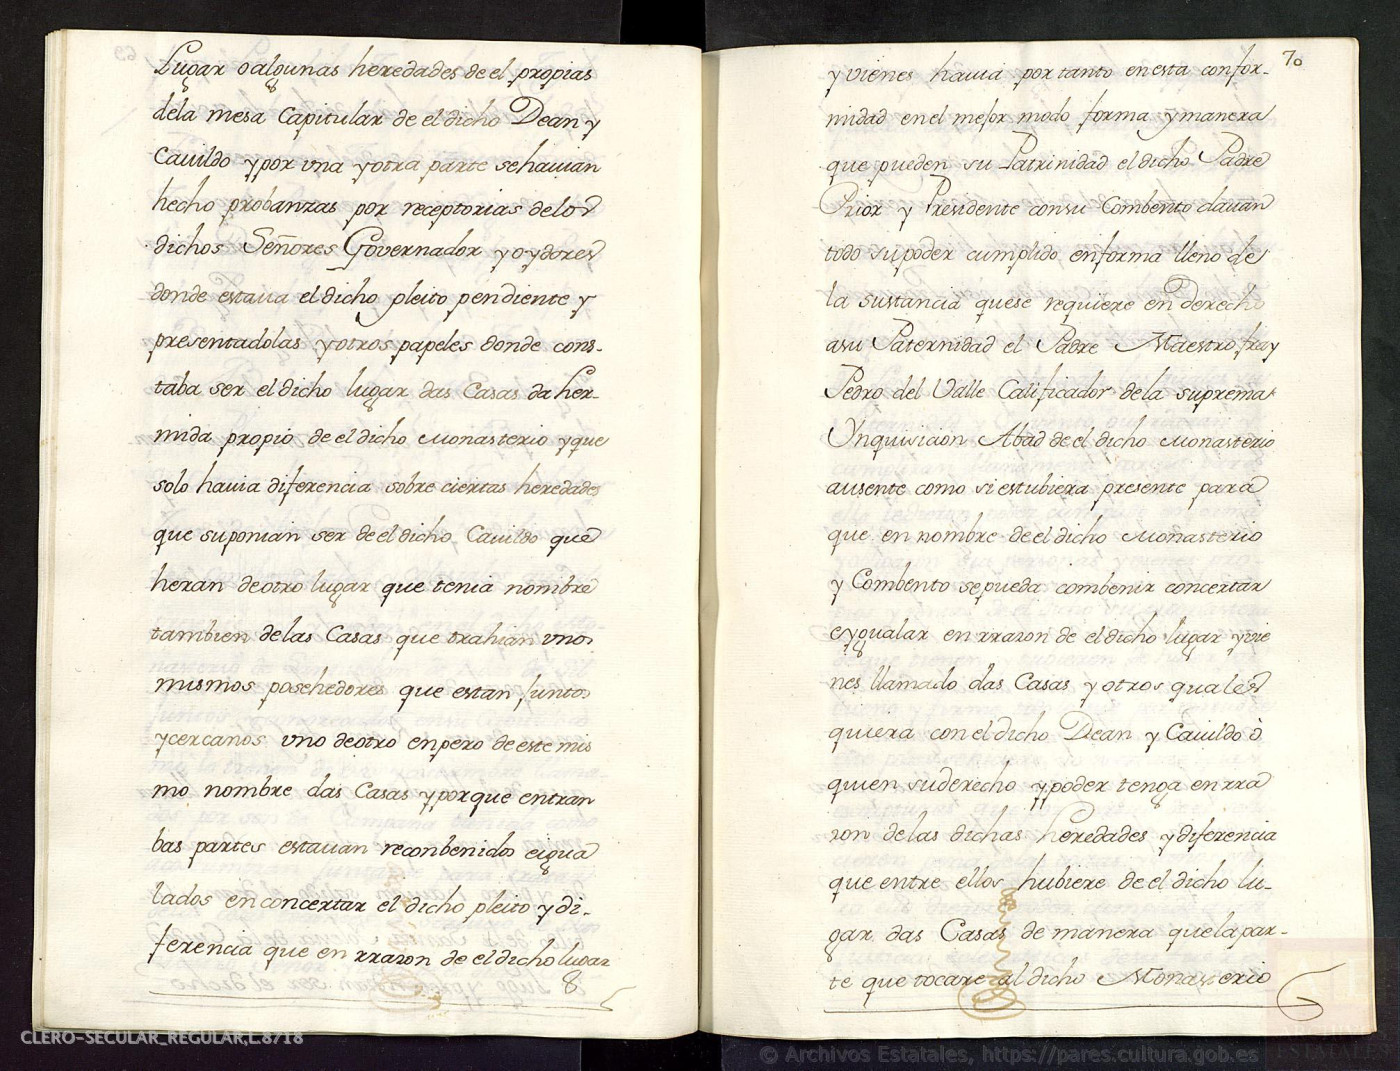 Lugar o algunas heredades de el propias
dela mesa Capitular de el dicho Dean y
Cauildo y por vna y otra parte se hauian
hecho probanzas por receptorias delos
dichos Señores Governador y oydores
donde estaua el dicho pleito pendiente y
presentadolas y otros papeles donde cons-
taba ser el dicho lugar das Casas da her-
mida propio de el dicho Monasterio y que
solo hauia diferencia sobre ciertas heredades
que suponian ser de el dicho Cauildo que
heran de otro lugar que tenia nombre
tambien de las Casas que trahian vnos
mismos posehedores que estan juntos
y cercanos vno de otro enpero de este mis
mo nombre das Casas y porque entran
bas partes estauan reconbenidos e igua
lados en concertar el dicho pleito y di-
ferencia que en rrazon de el dicho lugar
8
70
y vienes hauia por tanto en esta confor-
midad en el mejor modo forma y manera
que pueden su Patrinidad el dicho Padre
Prior y Presidente con su Combento dauan
todo su poder cumplido en forma lleno de
la sustancia que se requiere en derecho
a su Paternidad el Padre Maestro fray
Pedro del Valle Calificador de la suprema
Ynquisicion Abad de el dicho Monasterio
ausente como si estubiera presente para
que en nombre de el dicho Monasterio
y Combento se pueda combenir concertar
e ygualar en rrazon de el dicho lugar y vie
nes llamado das Casas y otros quales
quiera con el dicho Dean y Cauildo ò
quien su derecho y poder tenga en rra
zon de las dichas heredades y diferencia
que entre ellos hubiere de el dicho lu-
gar das Casas de manera que la par-
te que tocare al dicho Monasterio
CLERO-SECULAR_REGULAR,L.8718
© Archivos Estatales, https://pares.cultura.gob.es